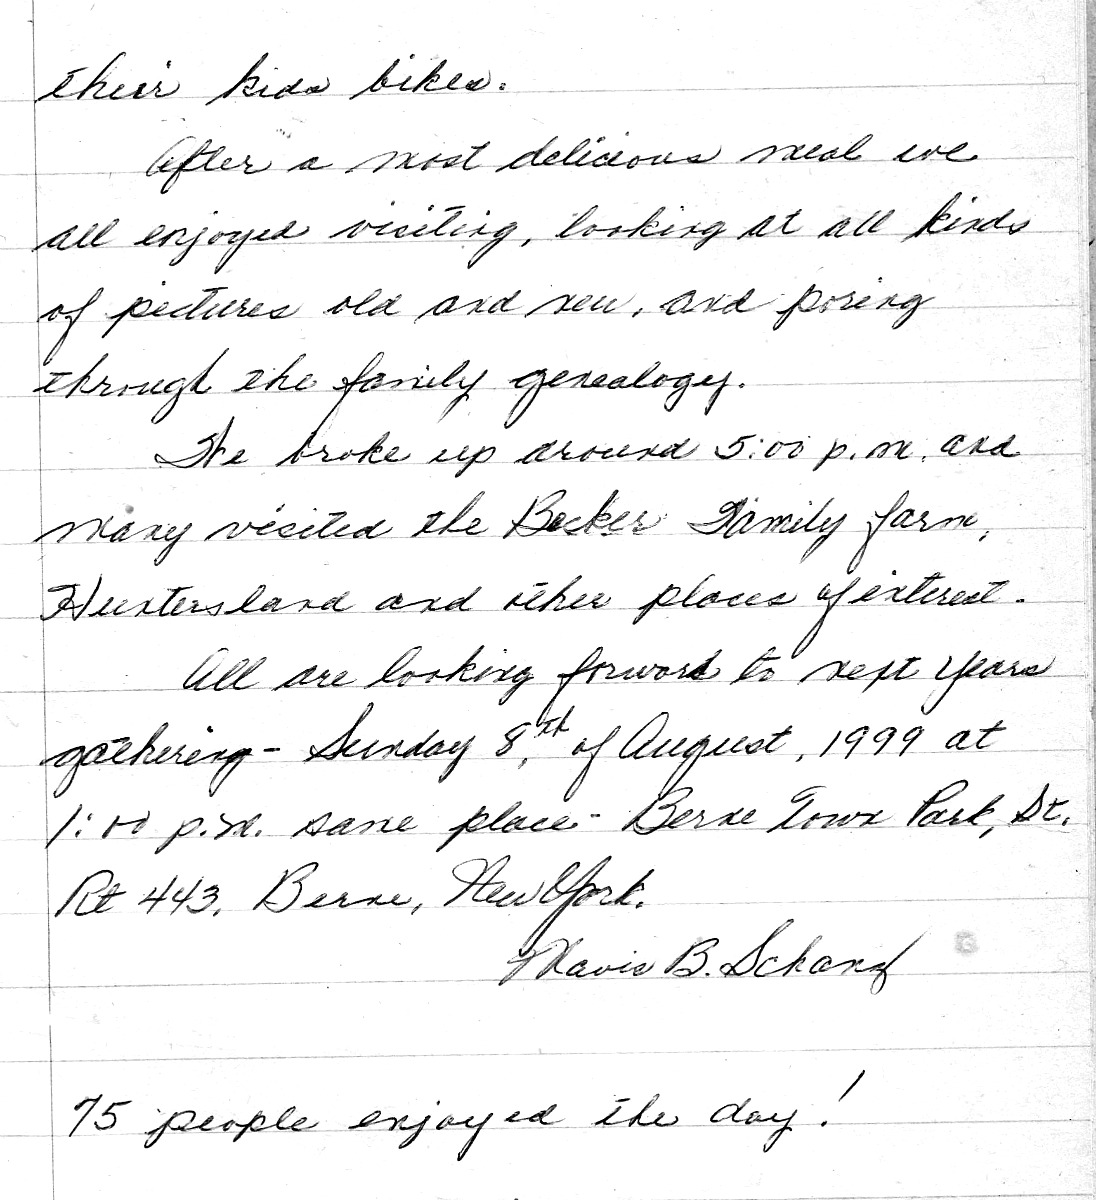 their kids bikes.
After a most delicious meal we
all enjoyed visiting, looking at all kinds
of pictures old and new, and poring
through the family genealogy.
We broke up around 5:00 p.m. and
many visited the Becker Family farm,
Huntersland and other places of interest.
All are looking forward to next years
gathering - Sunday 8th of August, 1999 at
1:00 p.m. same place - Berne Town Park, St.
Rt 443, Berne, New York.
Mavis B. Schanz
75 people enjoyed the day!